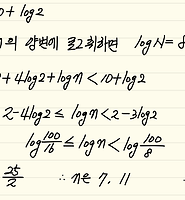 0 + log2
의 양변에 로그 취하면 log N = 8
+ 4log2 + log n < 10 + log2
2 - 4log2 ≤ log n < 2 - 3log2
log 100/16 ≤ log n < log 100/8
25/2 ∴ n은 7, 11